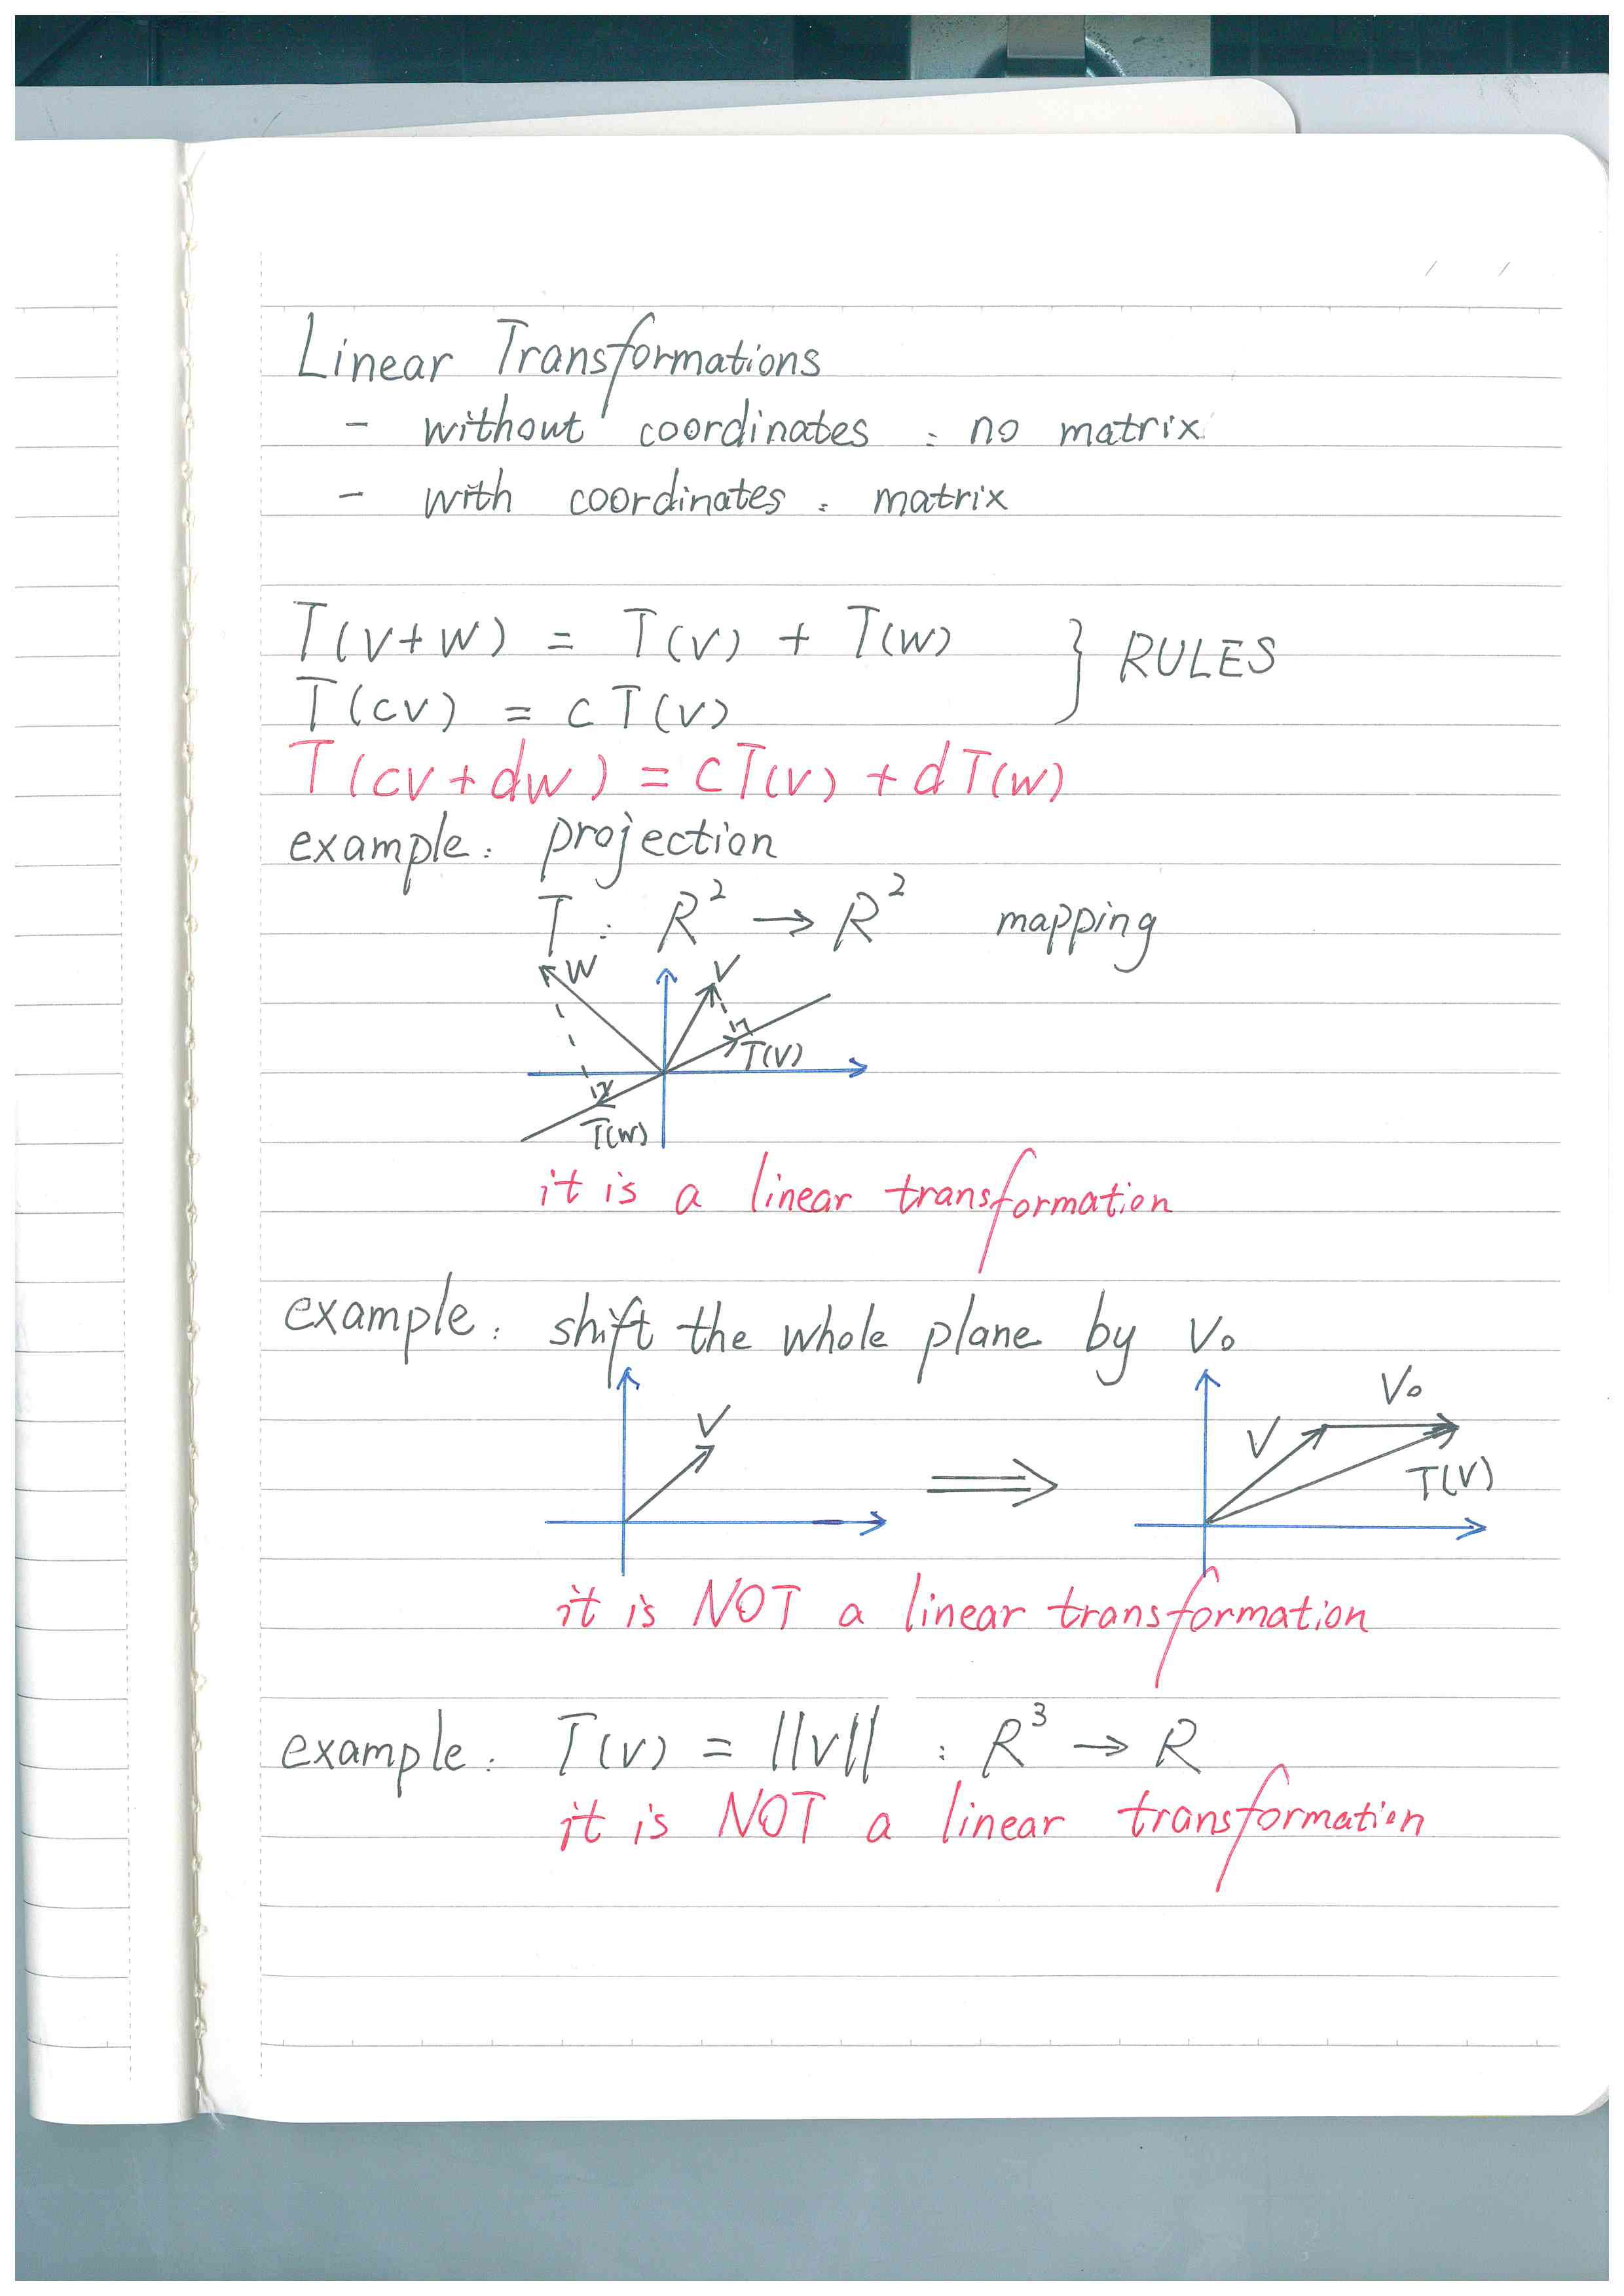 Linear Transformations
- without coordinates : no matrix
- with coordinates : matrix
T(v+w) = T(v) + T(w)
T(cv) = cT(v)
} RULES
T(cv+dw) = cT(v) + dT(w)
example: projection
T: R² → R² mapping
w
v
T(v)
T(w)
it is a linear transformation
example: shift the whole plane by v₀
v
⟹
v
v₀
T(v)
it is NOT a linear transformation
example: T(v) = ||v|| : R³ → R
it is NOT a linear transformation